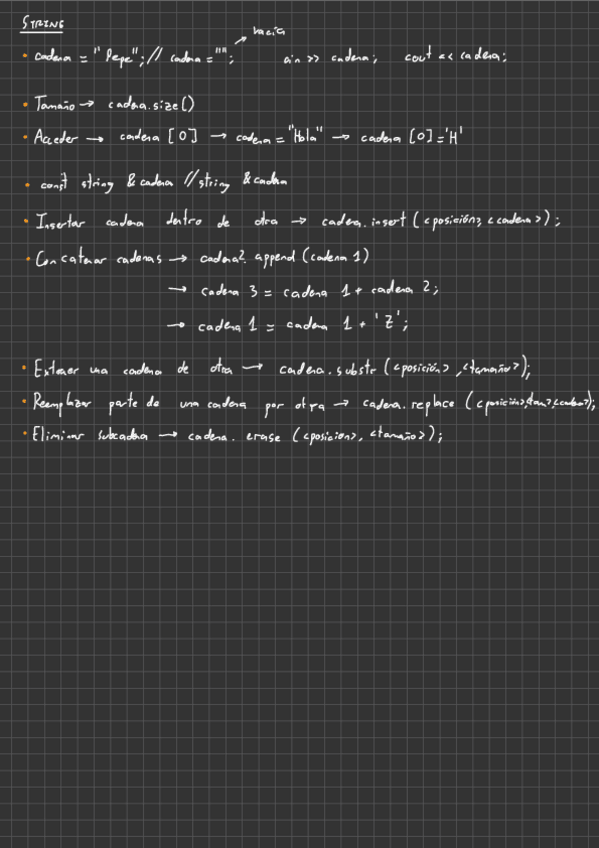 STRING
vacía
• cadena = "Pepe"; // cadena = ""; cin >> cadena; cout << cadena;
• Tamaño → cadena.size()
• Acceder → cadena [0] → cadena = "Hola" → cadena [0] = 'H'
• const string & cadena // string & cadena
• Insertar cadena dentro de otra → cadena.insert (<posición>, <cadena>);
• Concatenar cadenas → cadena2.append (cadena 1)
→ cadena 3 = cadena 1 + cadena 2;
→ cadena 1 = cadena 1 + 'Z';
• Extraer una cadena de otra → cadena.substr (<posición>, <tamaño>);
• Reemplazar parte de una cadena por otra → cadena.replace (<posición>,<tam>,<cadena>);
• Eliminar subcadena → cadena.erase (<posicion>, <tamaño>);